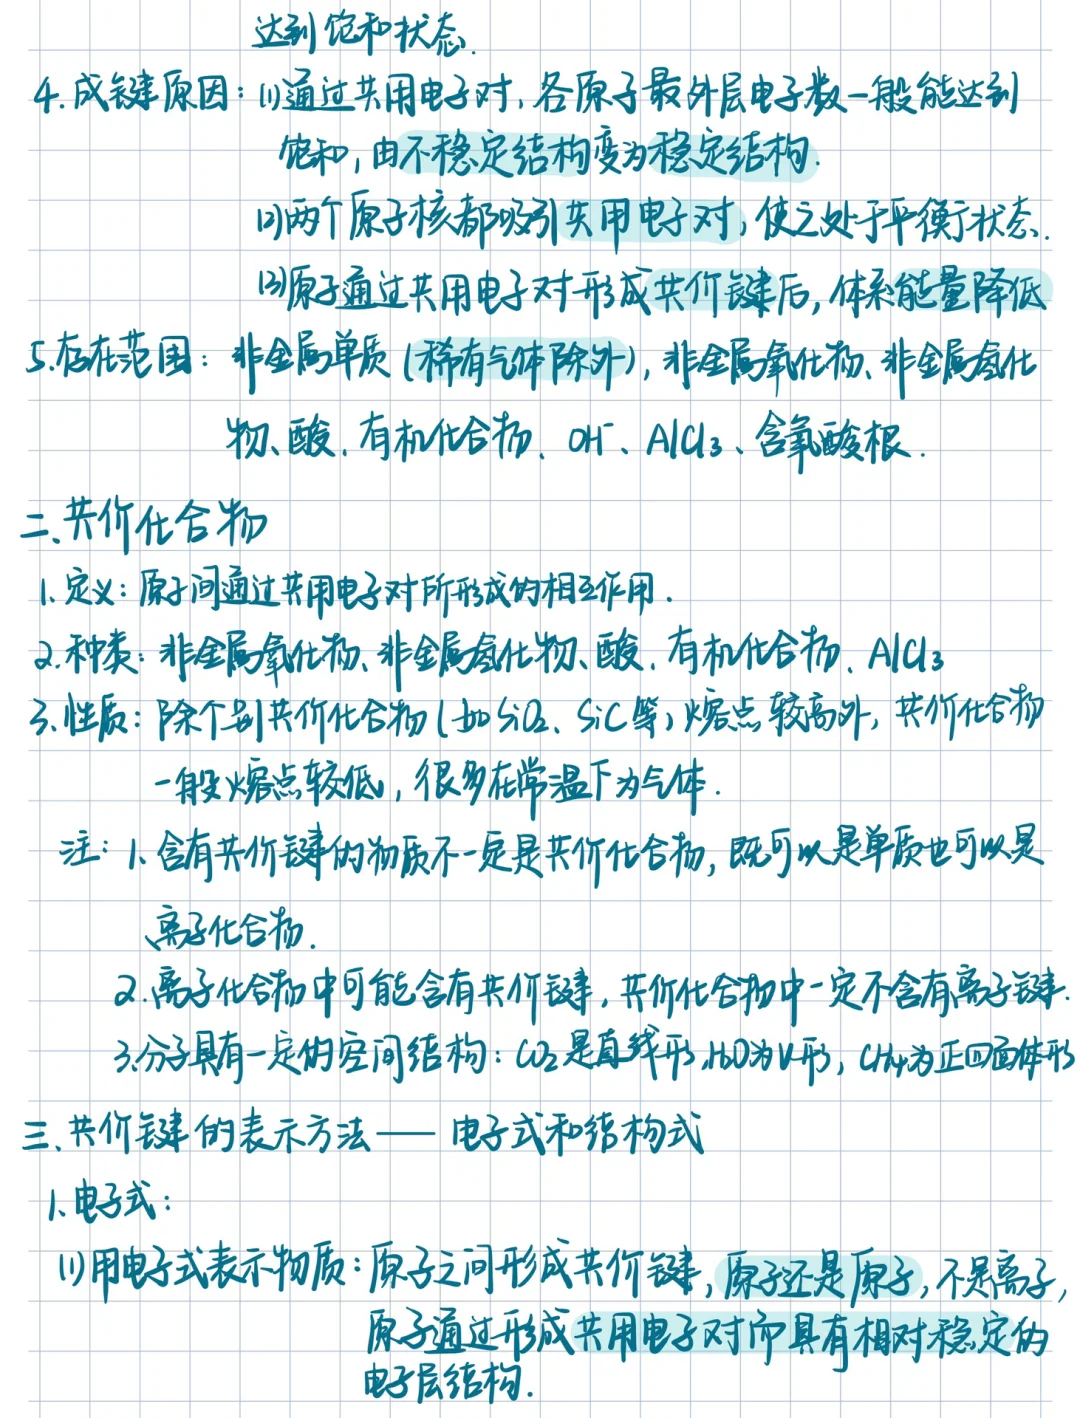 达到饱和状态.
4.成键原因:(1)通过共用电子对,各原子最外层电子数一般能达到
饱和,由不稳定结构变为稳定结构.
(2)两个原子核都吸引共用电子对,使之处于平衡状态.
(3)原子通过共用电子对形成共价键后,体系能量降低
5.存在范围:非金属单质(稀有气体除外),非金属氧化物、非金属氢化
物、酸、有机化合物、OH⁻、AlCl₃、含氧酸根.
二、共价化合物
1.定义:原子间通过共用电子对所形成的相互作用.
2.种类:非金属氧化物、非金属氢化物、酸、有机化合物、AlCl₃
3.性质:除个别共价化合物(如SiO₂、SiC等)熔点较高外,共价化合物
一般熔点较低,很多在常温下为气体.
注:1、含有共价键的物质不一定是共价化合物,既可以是单质也可以是
离子化合物.
2.离子化合物中可能含有共价键,共价化合物中一定不含有离子键.
3.分子具有一定的空间结构:CO₂是直线形,H₂O为V形,CH₄为正四面体形
三、共价键的表示方法——电子式和结构式
1、电子式:
(1)用电子式表示物质:原子之间形成共价键,原子还是原子,不是离子,
原子通过形成共用电子对而具有相对稳定的
电子层结构.